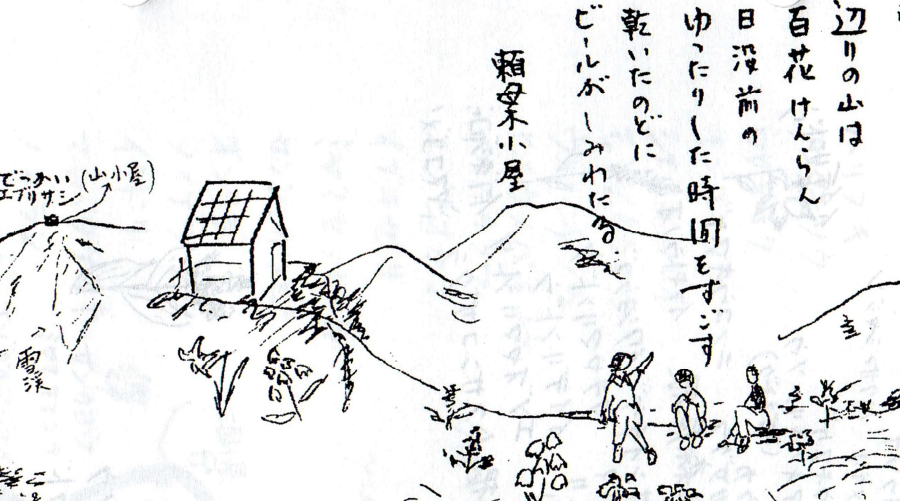 辺りの山は
百花けんらん
日没前の
ゆったりした時間をすごす
乾いたのどに
ビールがしみわたる
頼母木小屋
でっかい
エブリサシ
(山小屋)
雪渓